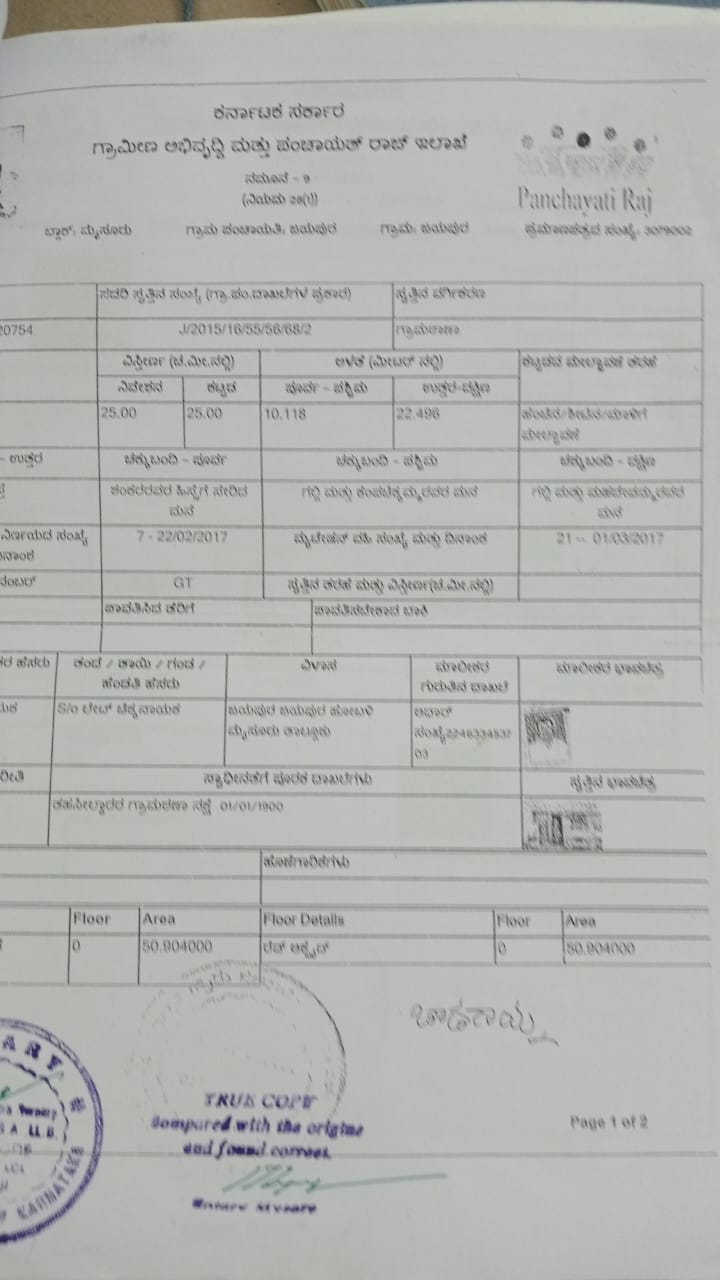 ಕರ್ನಾಟಕ ಸರ್ಕಾರ
ಗ್ರಾಮೀಣ ಅಭಿವೃದ್ಧಿ ಮತ್ತು ಪಂಚಾಯತ್ ರಾಜ್ ಇಲಾಖೆ
ನಮೂನೆ - 9
(ನಿಯಮ 28(1))
Panchayati Raj
ಬ್ಲಾಕ್: ಮೈಸೂರು ಗ್ರಾಮ ಪಂಚಾಯತಿ: ಜಯಪುರ ಗ್ರಾಮ: ಜಯಪುರ ಪ್ರಮಾಣಪತ್ರದ ಸಂಖ್ಯೆ: 3079002
ಸದರಿ ಸ್ವತ್ತಿನ ಸಂಖ್ಯೆ (ಗ್ರಾ.ಪಂ.ದಾಖಲೆಗಳ ಪ್ರಕಾರ) ಸ್ವತ್ತಿನ ವರ್ಗೀಕರಣ
20754 J/2015/16/55/56/68/2 ಗ್ರಾಮಠಾಣಾ
ವಿಸ್ತೀರ್ಣ (ಚ.ಮೀ.ನಲ್ಲಿ) ಅಳತೆ (ಮೀಟರ್ ನಲ್ಲಿ) ಕಟ್ಟಡದ ಮೇಲ್ಛಾವಣಿ ತರಹೆ
ನಿವೇಶನ ಕಟ್ಟಡ ಪೂರ್ವ - ಪಶ್ಚಿಮ ಉತ್ತರ-ದಕ್ಷಿಣ
25.00 25.00 10.118 22.496 ಹಂಚಿನ/ಶೀಟಿನ/ಮಾಳಿಗೆ
ಮೇಲ್ಛಾವಣಿ
- ಉತ್ತರ ಚಕ್ಕುಬಂದಿ - ಪೂರ್ವ ಚಕ್ಕುಬಂದಿ - ಪಶ್ಚಿಮ ಚಕ್ಕುಬಂದಿ - ದಕ್ಷಿಣ
ಶಂಕರರವರ ಹಿಸ್ಸೆಗೆ ಸೇರಿದ ಗಲ್ಲಿ ಮತ್ತು ಕೆಂಪಚಿಕ್ಕಮ್ಮರವರ ಮನೆ ಗಲ್ಲಿ ಮತ್ತು ಮಹದೇವಮ್ಮರವರ
ಮನೆ ಮನೆ
ನಿರ್ಣಯದ ಸಂಖ್ಯೆ 7 - 22/02/2017 ಮ್ಯುಟೇಷನ್ ವಹಿ ಸಂಖ್ಯೆ ಮತ್ತು ದಿನಾಂಕ 21 -- 01/03/2017
GT ಸ್ವತ್ತಿನ ತರಹೆ ಮತ್ತು ವಿಸ್ತೀರ್ಣ(ಚ.ಮೀ.ನಲ್ಲಿ)
ಪಾವತಿಸಿದ ತೆರಿಗೆ ಪಾವತಿಸಬೇಕಾದ ಬಾಕಿ
ಹೆಸರು ತಂದೆ / ತಾಯಿ / ಗಂಡ / ವಿಳಾಸ ಮಾಲೀಕರ ಮಾಲೀಕರ ಭಾವಚಿತ್ರ
ಹೆಂಡತಿ ಹೆಸರು ಗುರುತಿನ ದಾಖಲೆ
S/o ಲೇಟ್ ಚಿಕ್ಕನಾಯಕ ಜಯಪುರ ಜಯಪುರ ಹೋಬಳಿ ಆಧಾರ್
ಮೈಸೂರು ತಾಲ್ಲೂಕು ಸಂಖ್ಯೆ:2246334537
03
ರೀತಿ ಸ್ವಾಧೀನತೆಗೆ ಪೂರಕ ದಾಖಲೆಗಳು ಸ್ವತ್ತಿನ ಭಾವಚಿತ್ರ
ತಹಸೀಲ್ದಾರರ ಗ್ರಾಮಠಾಣಾ ನಕ್ಷೆ 01/01/1900
ಹೊಣೆಗಾರಿಕೆಗಳು
Floor Area Floor Details Floor Area
0 50.904000 ರೆಡ್ ಆಕ್ಸೈಡ್ 0 50.904000
TRUE COPY
Compared with the origine
and found correct.
Page 1 of 2
KARNATAKA